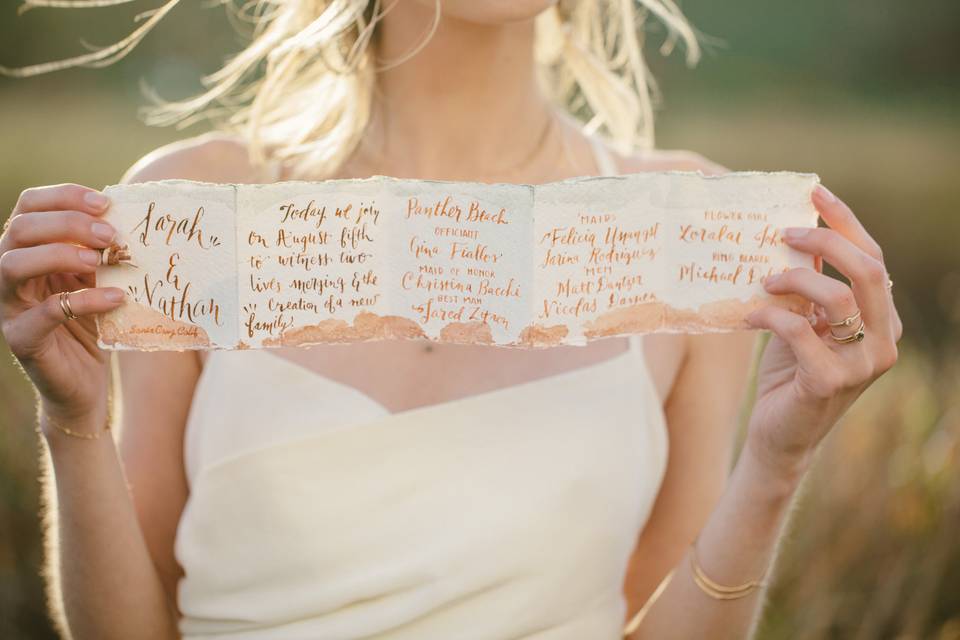 Sarah
&
Nathan
Santa Cruz, Calif
Today we join
on August fifth
to witness two
lives merging & the
creation of a new
family.
Panther Beach
OFFICIANT
Gina Fiallos
MAID OF HONOR
Christina Bacchi
BEST MAN
Jared Zitron
MAIDS
Felicia
Jarina Rodriguez
MEN
Matt Dantzer
Nicolas
FLOWER GIRL
Loralai
RING BEARER
Michael